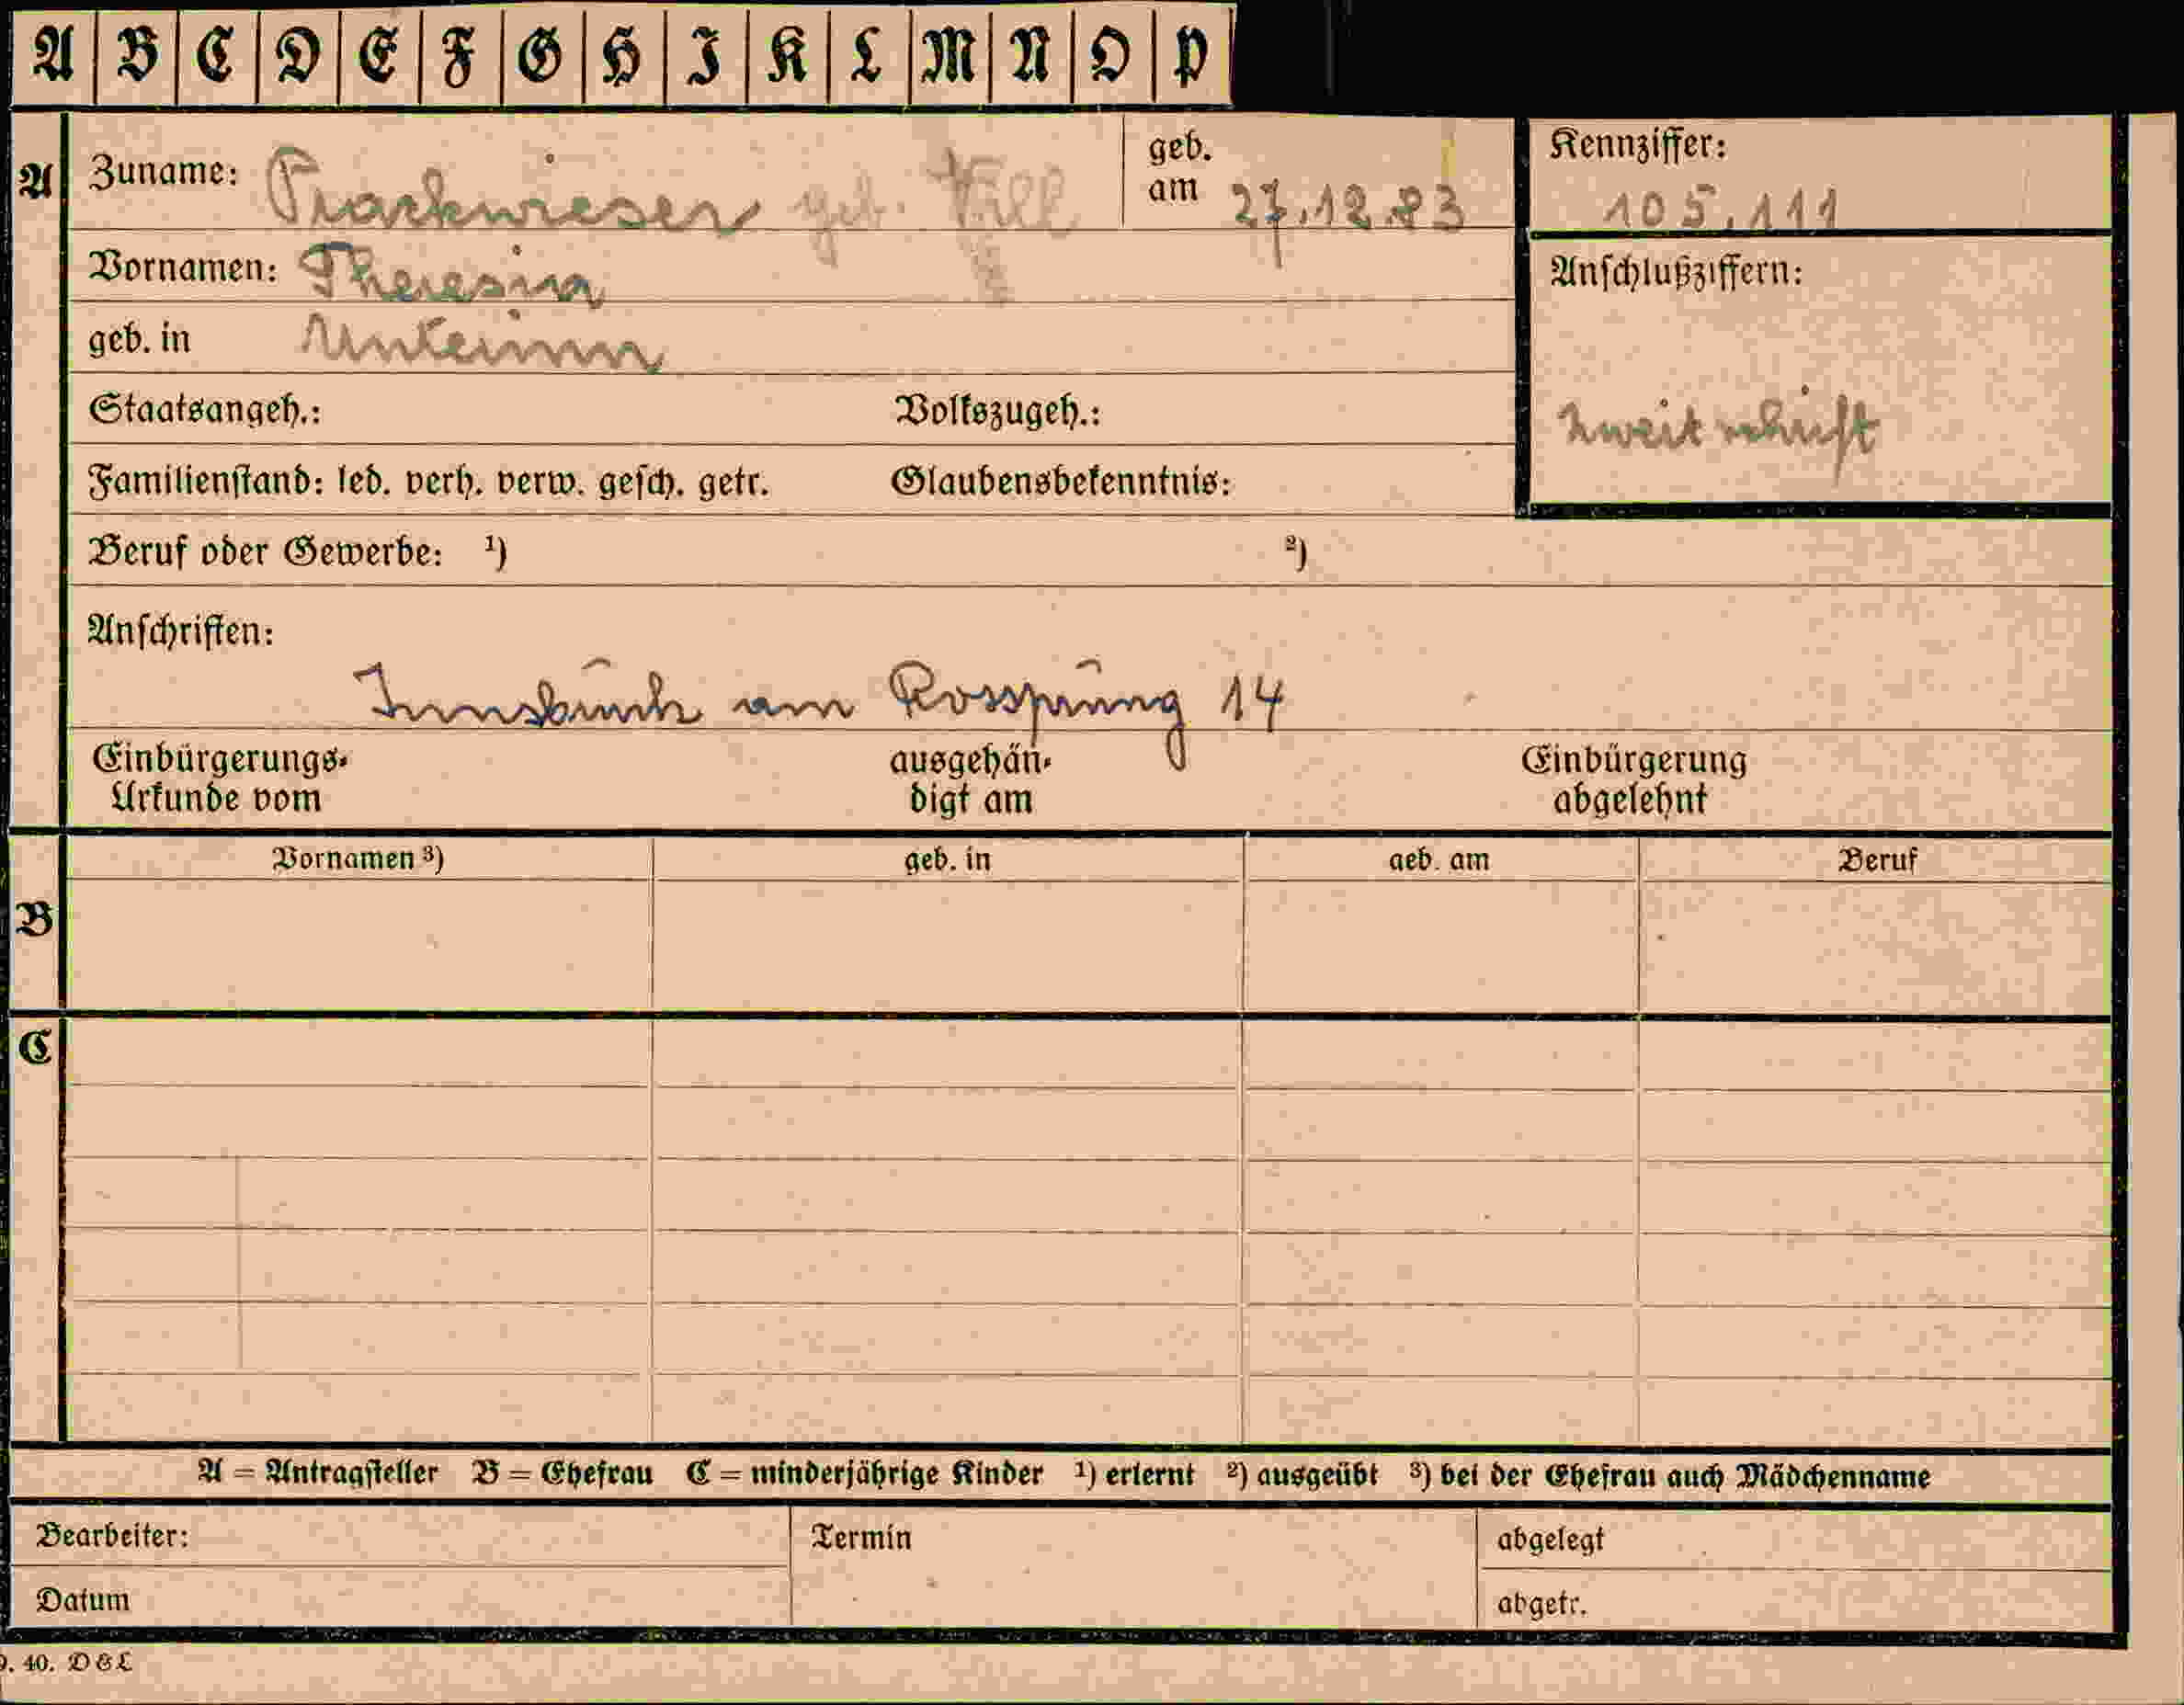 A B C D E F G H I K L M N O P
A Zuname: Prackwieser geb. Vill geb. am 27.12.83 Kennziffer: 105.111
Vornamen: Theresia Anschlußziffern:
geb. in Unterinn
Staatsangeh.: Volkszugeh.: Zweitschrift
Familienstand: led. verh. verw. gesch. getr. Glaubensbekenntnis:
Beruf oder Gewerbe: ¹) ²)
Anschriften:
Innsbruck am Rossprung 14
Einbürgerungs- ausgehän- Einbürgerung
Urkunde vom digt am abgelehnt
Vornamen ³) geb. in geb. am Beruf
B
C
A = Antragsteller B = Ehefrau C = minderjährige Kinder ¹) erlernt ²) ausgeübt ³) bei der Ehefrau auch Mädchenname
Bearbeiter: Termin abgelegt
Datum abgetr.
9. 40. D&L